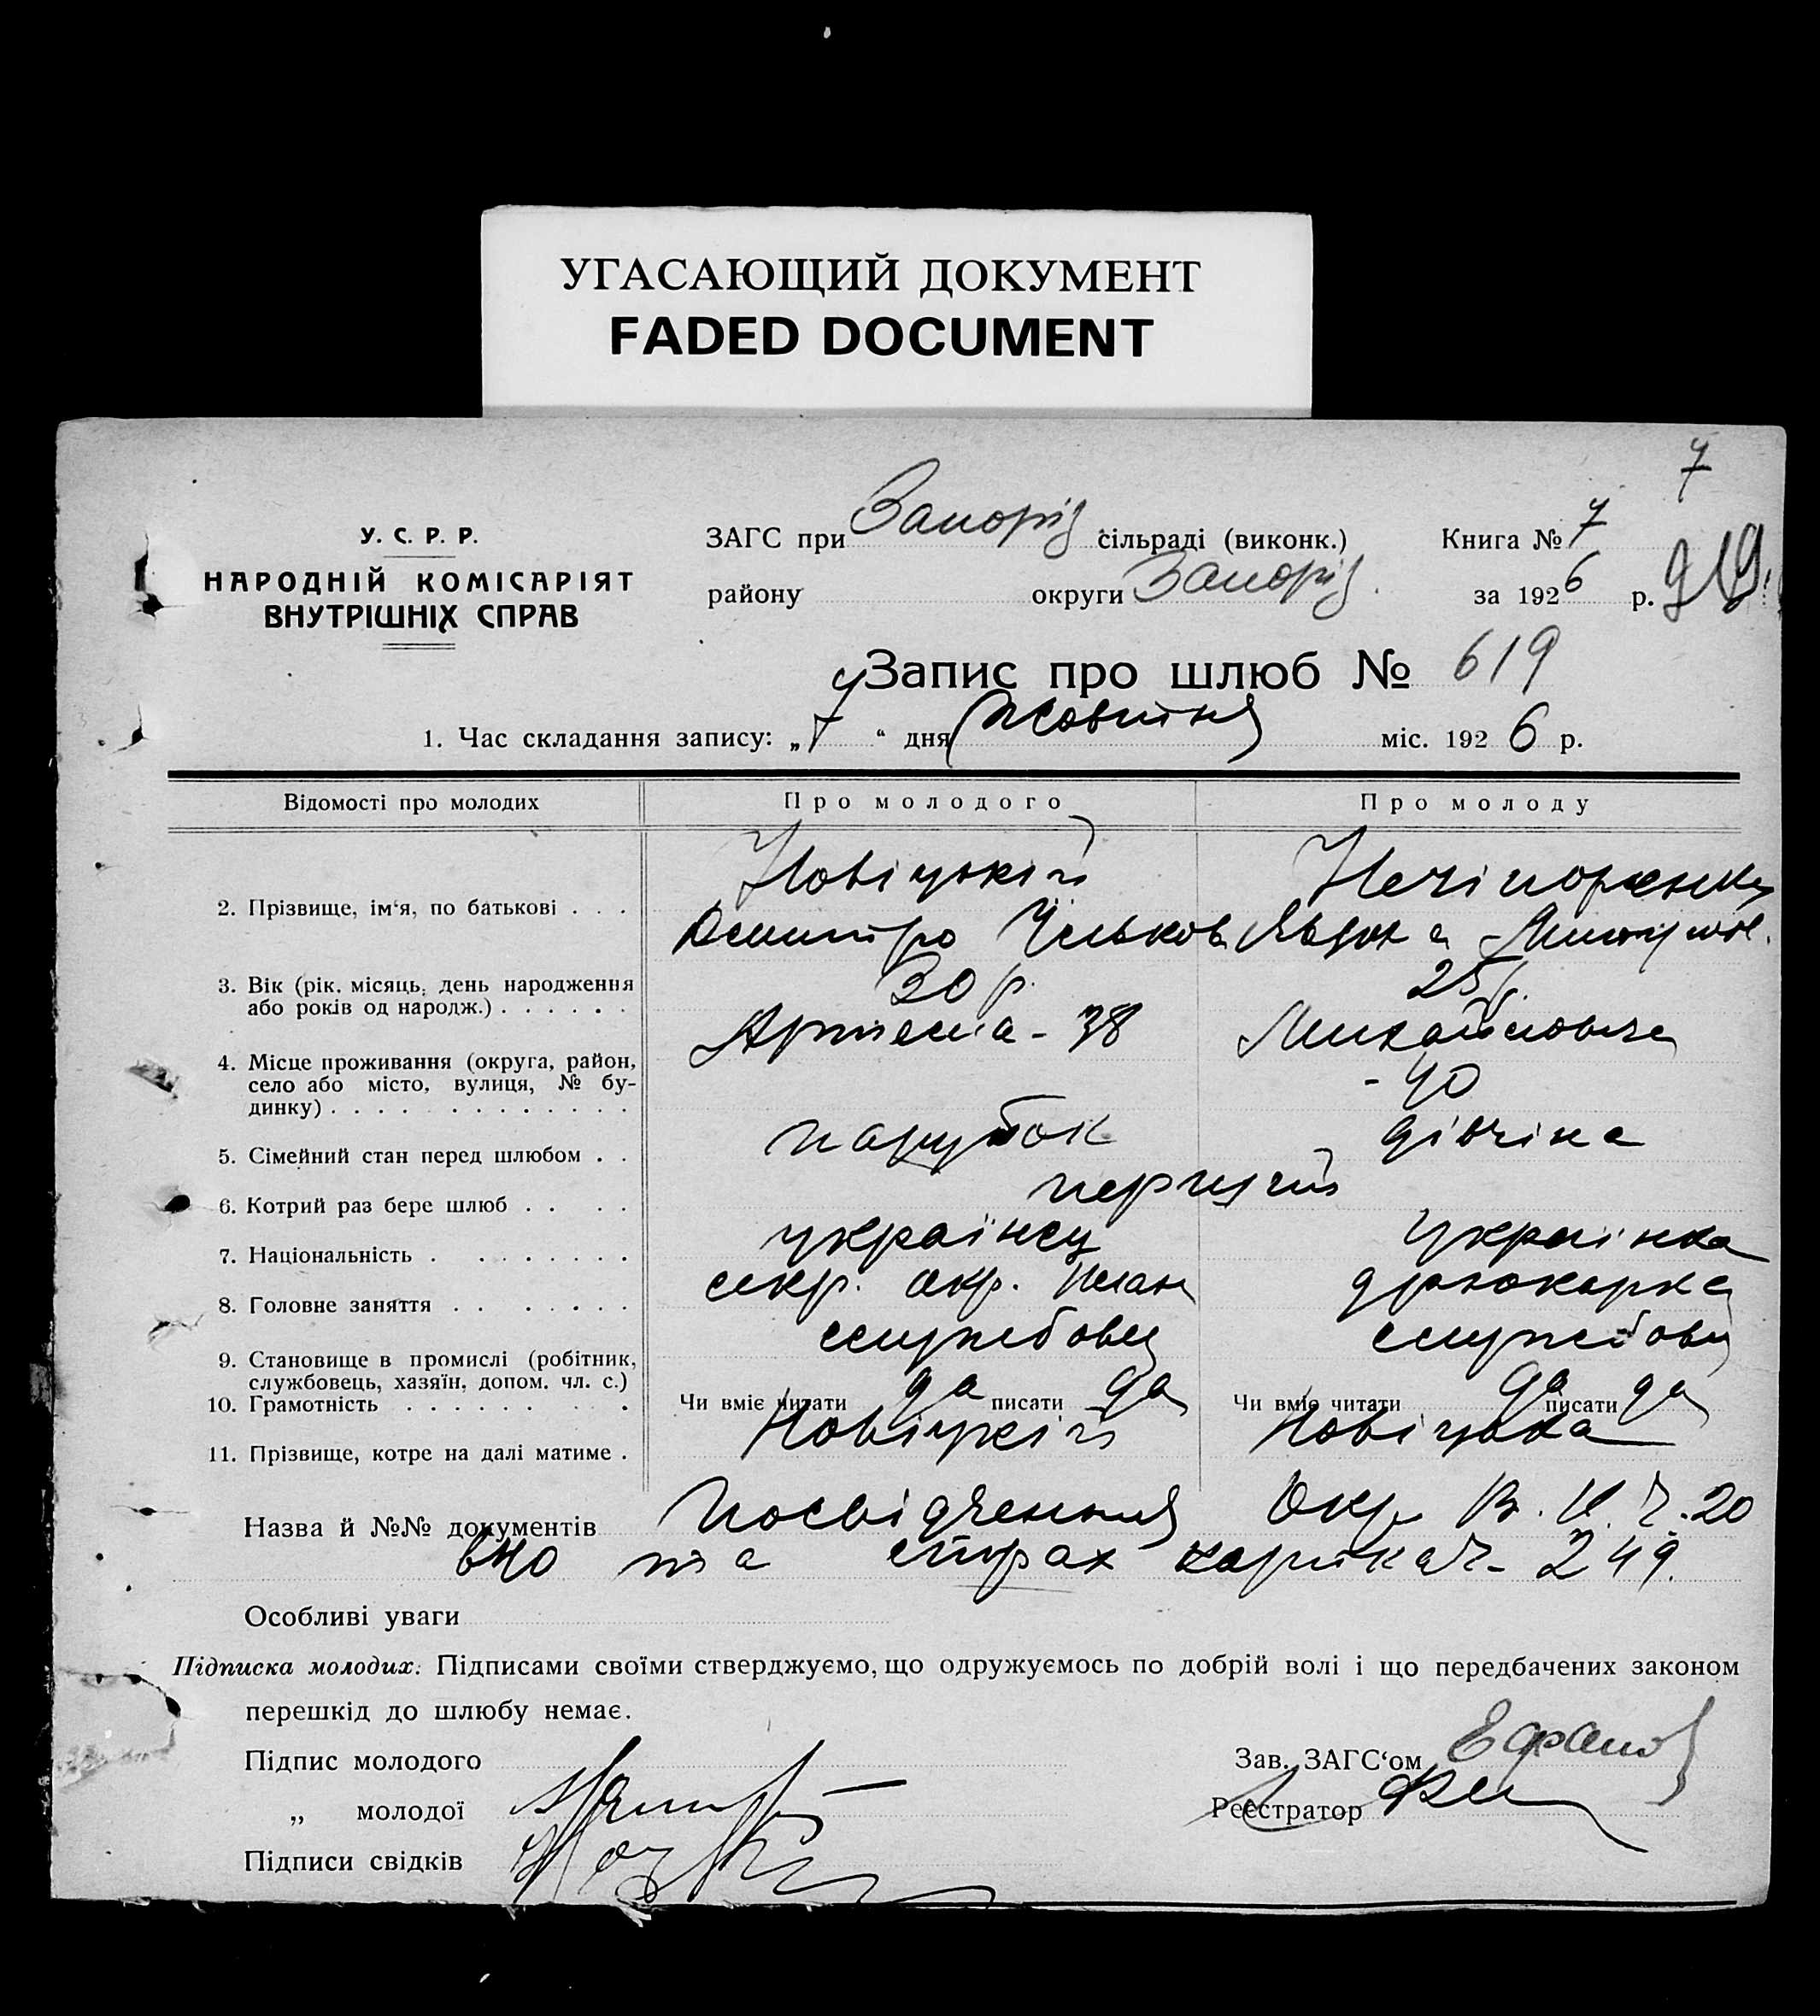 УГАСАЮЩИЙ ДОКУМЕНТ
FADED DOCUMENT
7
У. С. Р. Р.
НАРОДНІЙ КОМІСАРІЯТ
ВНУТРІШНІХ СПРАВ
ЗАГС при Запоріз сільраді (виконк.) Книга № 7
району округи Запоріз. за 1926 р. 919
Запис про шлюб № 619
1. Час складання запису: „7“ дня Жовтня міс. 1926 р.
Відомості про молодих Про молодого Про молоду
2. Прізвище, ім'я, по батькові . . . Новіцькій Нечіпоренко
Дмитро
3. Вік (рік, місяць, день народження
або років од народж.) . . . . . . 30 р. 25 р.
4. Місце проживання (округа, район,
село або місто, вулиця, № бу-
динку) . . . . . . . . . . . . . Артема - 38 Михайловсче - 40
5. Сімейний стан перед шлюбом . . парубок дівчіна
6. Котрий раз бере шлюб . . . . перший
7. Національність . . . . . . . . українец українка
8. Головне заняття . . . . . . . секр. окр. план друкарка
9. Становище в промислі (робітник,
службовець, хазяїн, допом. чл. с.) службовец службовец
10. Грамотність . . . . . . . . . Чи вміє читати да писати да Чи вміє читати да писати да
11. Прізвище, котре на далі матиме . Новіцкій Новіцька
Назва й №№ документів посвідчення Окр В. К. ч. 20
та страх картка ч- 249.
Особливі уваги
Підписка молодих: Підписами своїми стверджуємо, що одружуємось по добрій волі і що передбачених законом
перешкід до шлюбу немає.
Підпис молодого Зав. ЗАГС'ом
„ молодої Реєстратор
Підписи свідків